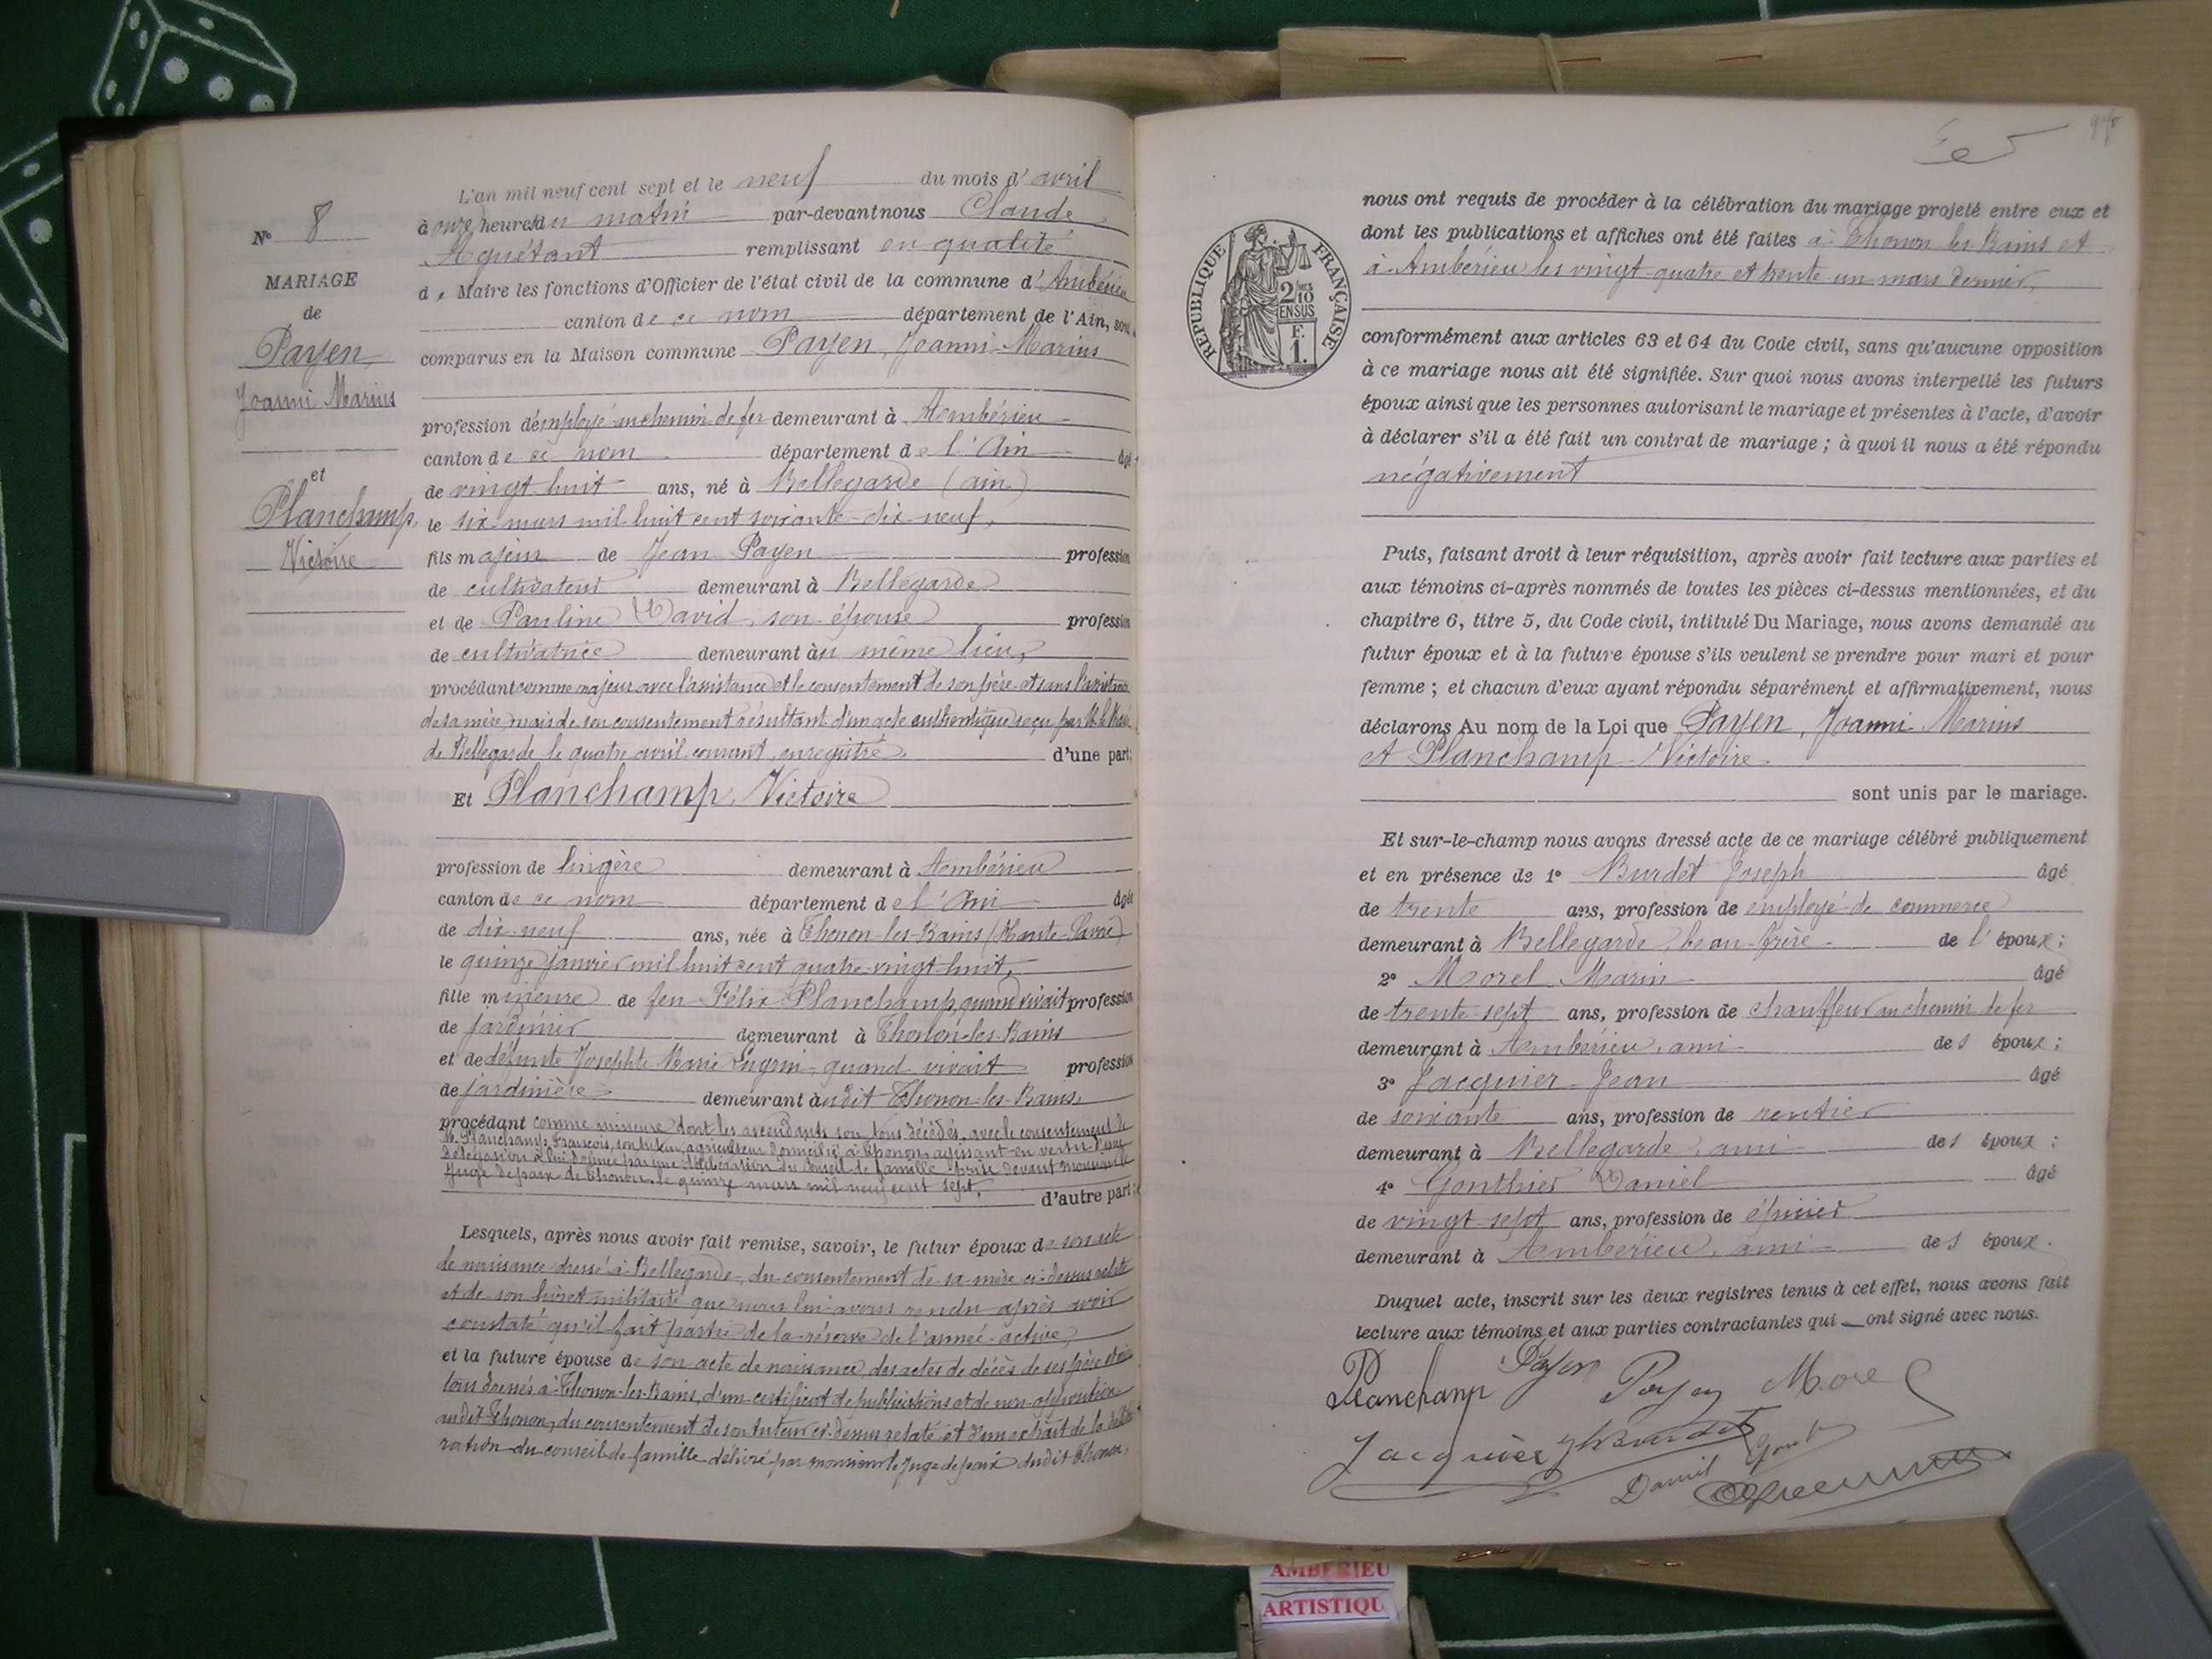 N° 8
MARIAGE
de
Payen
Joanni Marius
et
Planchamp
Victoire
L'an mil neuf cent sept et le neuf du mois d'avril
à onze heures du matin par-devant nous Claude
Aguétant remplissant en qualité
de Maire les fonctions d'Officier de l'état civil de la commune d'Ambérieu
canton de ce nom département de l'Ain, sont
comparus en la Maison commune Payen, Joanni-Marius
profession d'employé au chemin de fer demeurant à Ambérieu
canton de ce nom département de l'Ain âgé
de vingt huit ans, né à Bellegarde (ain)
le six mars mil huit cent soixante-dix-neuf,
fils majeur de Jean Payen profession
de cultivateur demeurant à Bellegarde
et de Pauline David, son épouse profession
de cultivatrice demeurant au même lieu,
procédant comme majeur avec l'assistance et le consentement de son père et sans l'assistance
de sa mère, mais de son consentement résultant d'un acte authentique reçu par M. le Maire
de Bellegarde le quatre avril courant, enregistré d'une part;
Et Planchamp, Victoire
profession de lingère demeurant à Ambérieu
canton de ce nom département de l'Ain âgée
de dix-neuf ans, née à Thonon-les-Bains (Haute-Savoie)
le quinze janvier mil huit cent quatre-vingt huit,
fille mineure de feu Félix Planchamp, quand vivait profession
de jardinier demeurant à Thonon-les-Bains
et de défunte Josephte Marie Lugrin, quand vivait profession
de jardinière demeurant audit Thonon-les-Bains,
procédant comme mineure dont les ascendants son tous décédés, avec le consentement de
M. Planchamp François, son tuteur, agriculteur domicilié à Thonon, agissant en vertu d'une
délégation à lui donnée par une délibération du conseil de famille prise devant monsieur le
Juge de paix de Thonon, le quinze mars mil neuf cent sept, d'autre part;
Lesquels, après nous avoir fait remise, savoir, le futur époux de son acte
de naissance dressé à Bellegarde, du consentement de sa mère ci-dessus relaté
et de son livret militaire que nous lui avons rendu après avoir
constaté qu'il fait partie de la réserve de l'armée active,
et la future épouse de son acte de naissance, des actes de décès de ses père et mère
tous dressés à Thonon-les-Bains, d'un certificat de publications et de non-opposition
audit Thonon, du consentement de son tuteur ci-dessus relaté et d'un extrait de la délibé-
ration du conseil de famille délivré par monsieur le Juge de paix dudit Thonon,
RÉPUBLIQUE FRANÇAISE
2/10
EN SUS
F.
1.
nous ont requis de procéder à la célébration du mariage projeté entre eux et
dont les publications et affiches ont été faites à Thonon les Bains et
à Ambérieu les vingt-quatre et trente un mars dernier,
conformément aux articles 63 et 64 du Code civil, sans qu'aucune opposition
à ce mariage nous ait été signifiée. Sur quoi nous avons interpellé les futurs
époux ainsi que les personnes autorisant le mariage et présentes à l'acte, d'avoir
à déclarer s'il a été fait un contrat de mariage ; à quoi il nous a été répondu
négativement
Puis, faisant droit à leur réquisition, après avoir fait lecture aux parties et
aux témoins ci-après nommés de toutes les pièces ci-dessus mentionnées, et du
chapitre 6, titre 5, du Code civil, intitulé Du Mariage, nous avons demandé au
futur époux et à la future épouse s'ils veulent se prendre pour mari et pour
femme ; et chacun d'eux ayant répondu séparément et affirmativement, nous
déclarons Au nom de la Loi que Payen, Joanni-Marius
et Planchamp Victoire
sont unis par le mariage.
Et sur-le-champ nous avons dressé acte de ce mariage célébré publiquement
et en présence de 1° Burdet Joseph âgé
de trente ans, profession de employé de commerce
demeurant à Bellegarde, beau-frère de l'époux ;
2° Morel Marin âgé
de trente-sept ans, profession de chauffeur au chemin de fer
demeurant à Ambérieu, ami des époux ;
3° Jacquier Jean âgé
de soixante ans, profession de rentier
demeurant à Bellegarde, ami des époux ;
4° Gonthier Daniel âgé
de vingt-sept ans, profession de épicier
demeurant à Ambérieu, ami des époux.
Duquel acte, inscrit sur les deux registres tenus à cet effet, nous avons fait
lecture aux témoins et aux parties contractantes qui ont signé avec nous.
Planchamp Payen Payen Morel
Jacquier Burdet
Daniel
AMBERIEU
ARTISTIQU